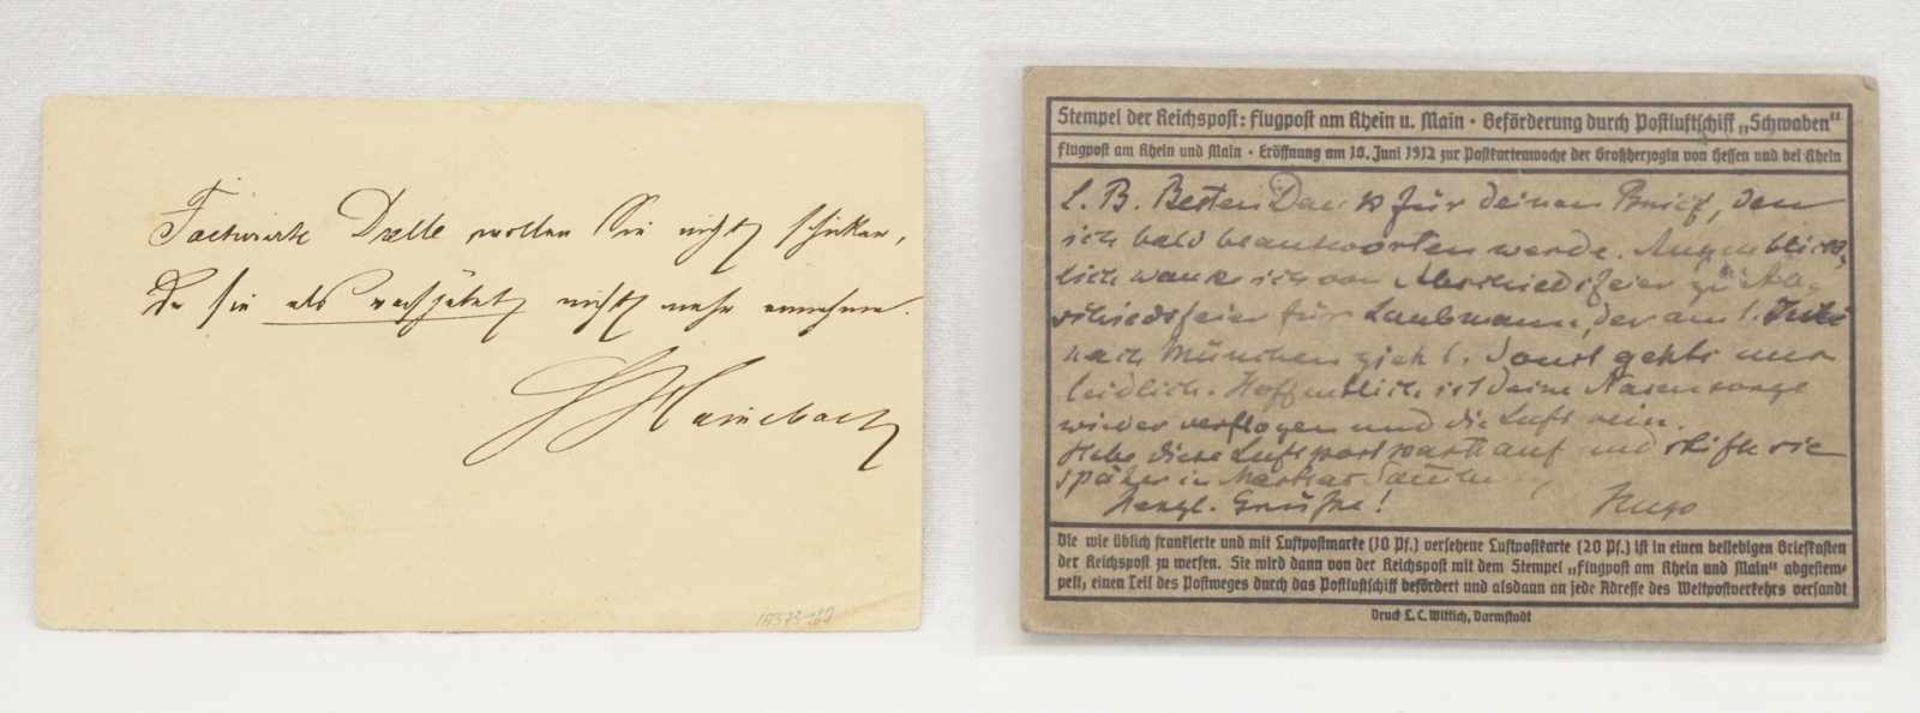 Facturirte Dxlle wollen Sie nicht schicken,
Da sie als verspätet nicht mehr annehme.
Hainebach
Stempel der Reichspost: Flugpost am Rhein u. Main · Beförderung durch Postluftschiff „Schwaben“
Flugpost am Rhein und Main · Eröffnung am 10. Juni 1912 zur Postkartenwoche der Großherzogin von Hessen und bei Rhein
L. B. Besten Dank für deinen Brief, den
ich bald beantworten werde. Augenblick-
lich wanke ich von Abschiedsfeier zu Ab-
schiedsfeier für Laubmann, der am 1. Juli
nach München zieht. Sonst gehts uns
leidlich. Hoffentlich ist deine Nasensorge
wieder verflogen und die Luft rein.
Hebe diese Luftpostkarte auf und stifte sie
später in
Herzl. Grüße! Hugo
Die wie üblich frankierte und mit Luftpostmarke (10 Pf.) versehene Luftpostkarte (20 Pf.) ist in einen beliebigen Briefkasten
der Reichspost zu werfen. Sie wird dann von der Reichspost mit dem Stempel „Flugpost am Rhein und Main“ abgestem-
pelt, einen Teil des Postweges durch das Postluftschiff befördert und alsdann an jede Adresse des Weltpostverkehrs versandt
Druck L. C. Wittich, Darmstadt